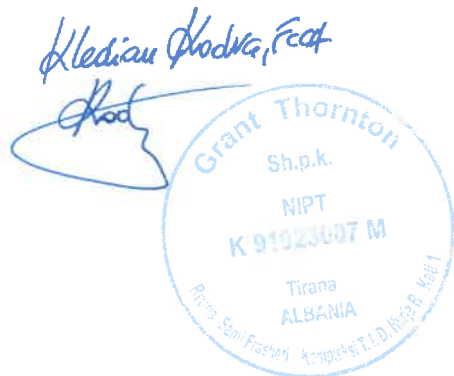 Kledian Kodra, FCCA
Kod
Grant Thornton
Sh.p.k.
NIPT
K 91923007 M
Tirana
ALBANIA
Rruga Sami Frasheri Kompleksi T.I.D. B. Kati 1